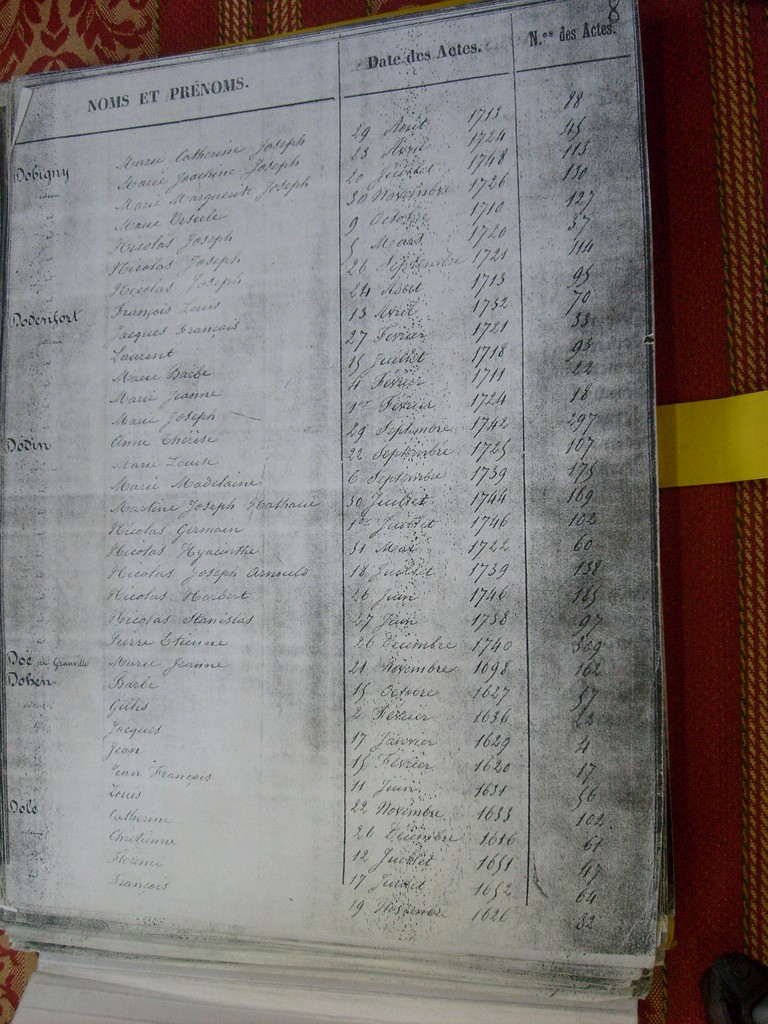 8
NOMS ET PRÉNOMS. Date des Actes. N.ros des Actes.
Dobigny Marie Catherine Joseph 29 Août 1713 88
Marie Joachine Joseph 23 Avril 1724 45
Marie Marguerite Joseph 20 Juillet 1748 113
Marie Ursule 30 Novembre 1726 130
Nicolas Joseph 9 Octobre 1710 127
Nicolas Joseph 5 Mars 1720 37
Nicolas Joseph 26 Septembre 1721 114
Dodenfort François Louis 24 Août 1713 95
Jacques François 13 Avril 1732 70
Laurent 27 Février 1721 33
Marie Barbe 15 Juillet 1718 93
Marie Jeanne 4 Février 1711 22
Marie Joseph 1er Février 1724 18
Dodin Anne Thérèse 29 Septembre 1742 297
Marie Louise 22 Septembre 1725 107
Marie Madelaine 6 Septembre 1739 175
Martine Joseph Nathalie 30 Juillet 1744 169
Nicolas Germain 1er Juillet 1746 102
Nicolas Hyacinthe 31 Mai 1722 60
Nicolas Joseph Arnould 18 Juillet 1739 138
Nicolas Norbert 26 Juin 1746 185
Nicolas Stanislas 27 Juin 1738 97
Pierre Etienne 26 Décembre 1740 309
Doë de Granville Marie Jeanne 21 Novembre 1698 162
Dohen Barbe 15 Octobre 1627 57
Gilles 2 Février 1636 22
Jacques 17 Janvier 1629 4
Jean 15 Février 1620 17
Jean François 11 Juin 1631 56
Louis 22 Novembre 1633 102
Dolé Catherine 26 Décembre 1616 61
Chrétienne 12 Juillet 1651 47
Florence 17 Juillet 1652 64
François 19 Novembre 1626 82